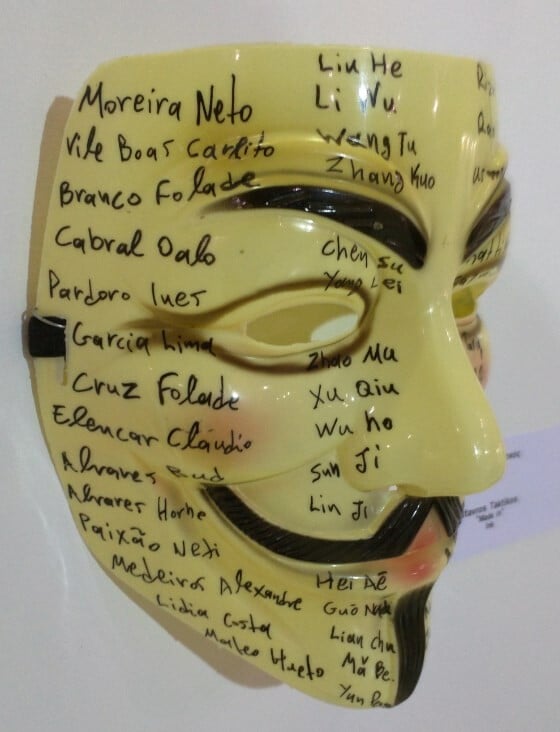 Moreira Neto
Vile Boas Carlito
Branco Folade
Cabral Dalo
Pardoro Ines
Garcia Lima
Cruz Folade
Elencar Cláudio
Alvares Bud
Alvares Horhe
Paixão Neti
Medeiros Alexandre
Lidia Costa
Mateo Hueto
Liu He
Li Wu
Wang Tu
Zhang Kuo
Chen Su
Yang Lei
Zhao Mu
Xu Qiu
Wu ho
Sun Ji
Lin Ji
Hei Aē
Guō
Lian chu
Mǎ Be.
Yun
Stavros Taktikos
"Made in"
Ink